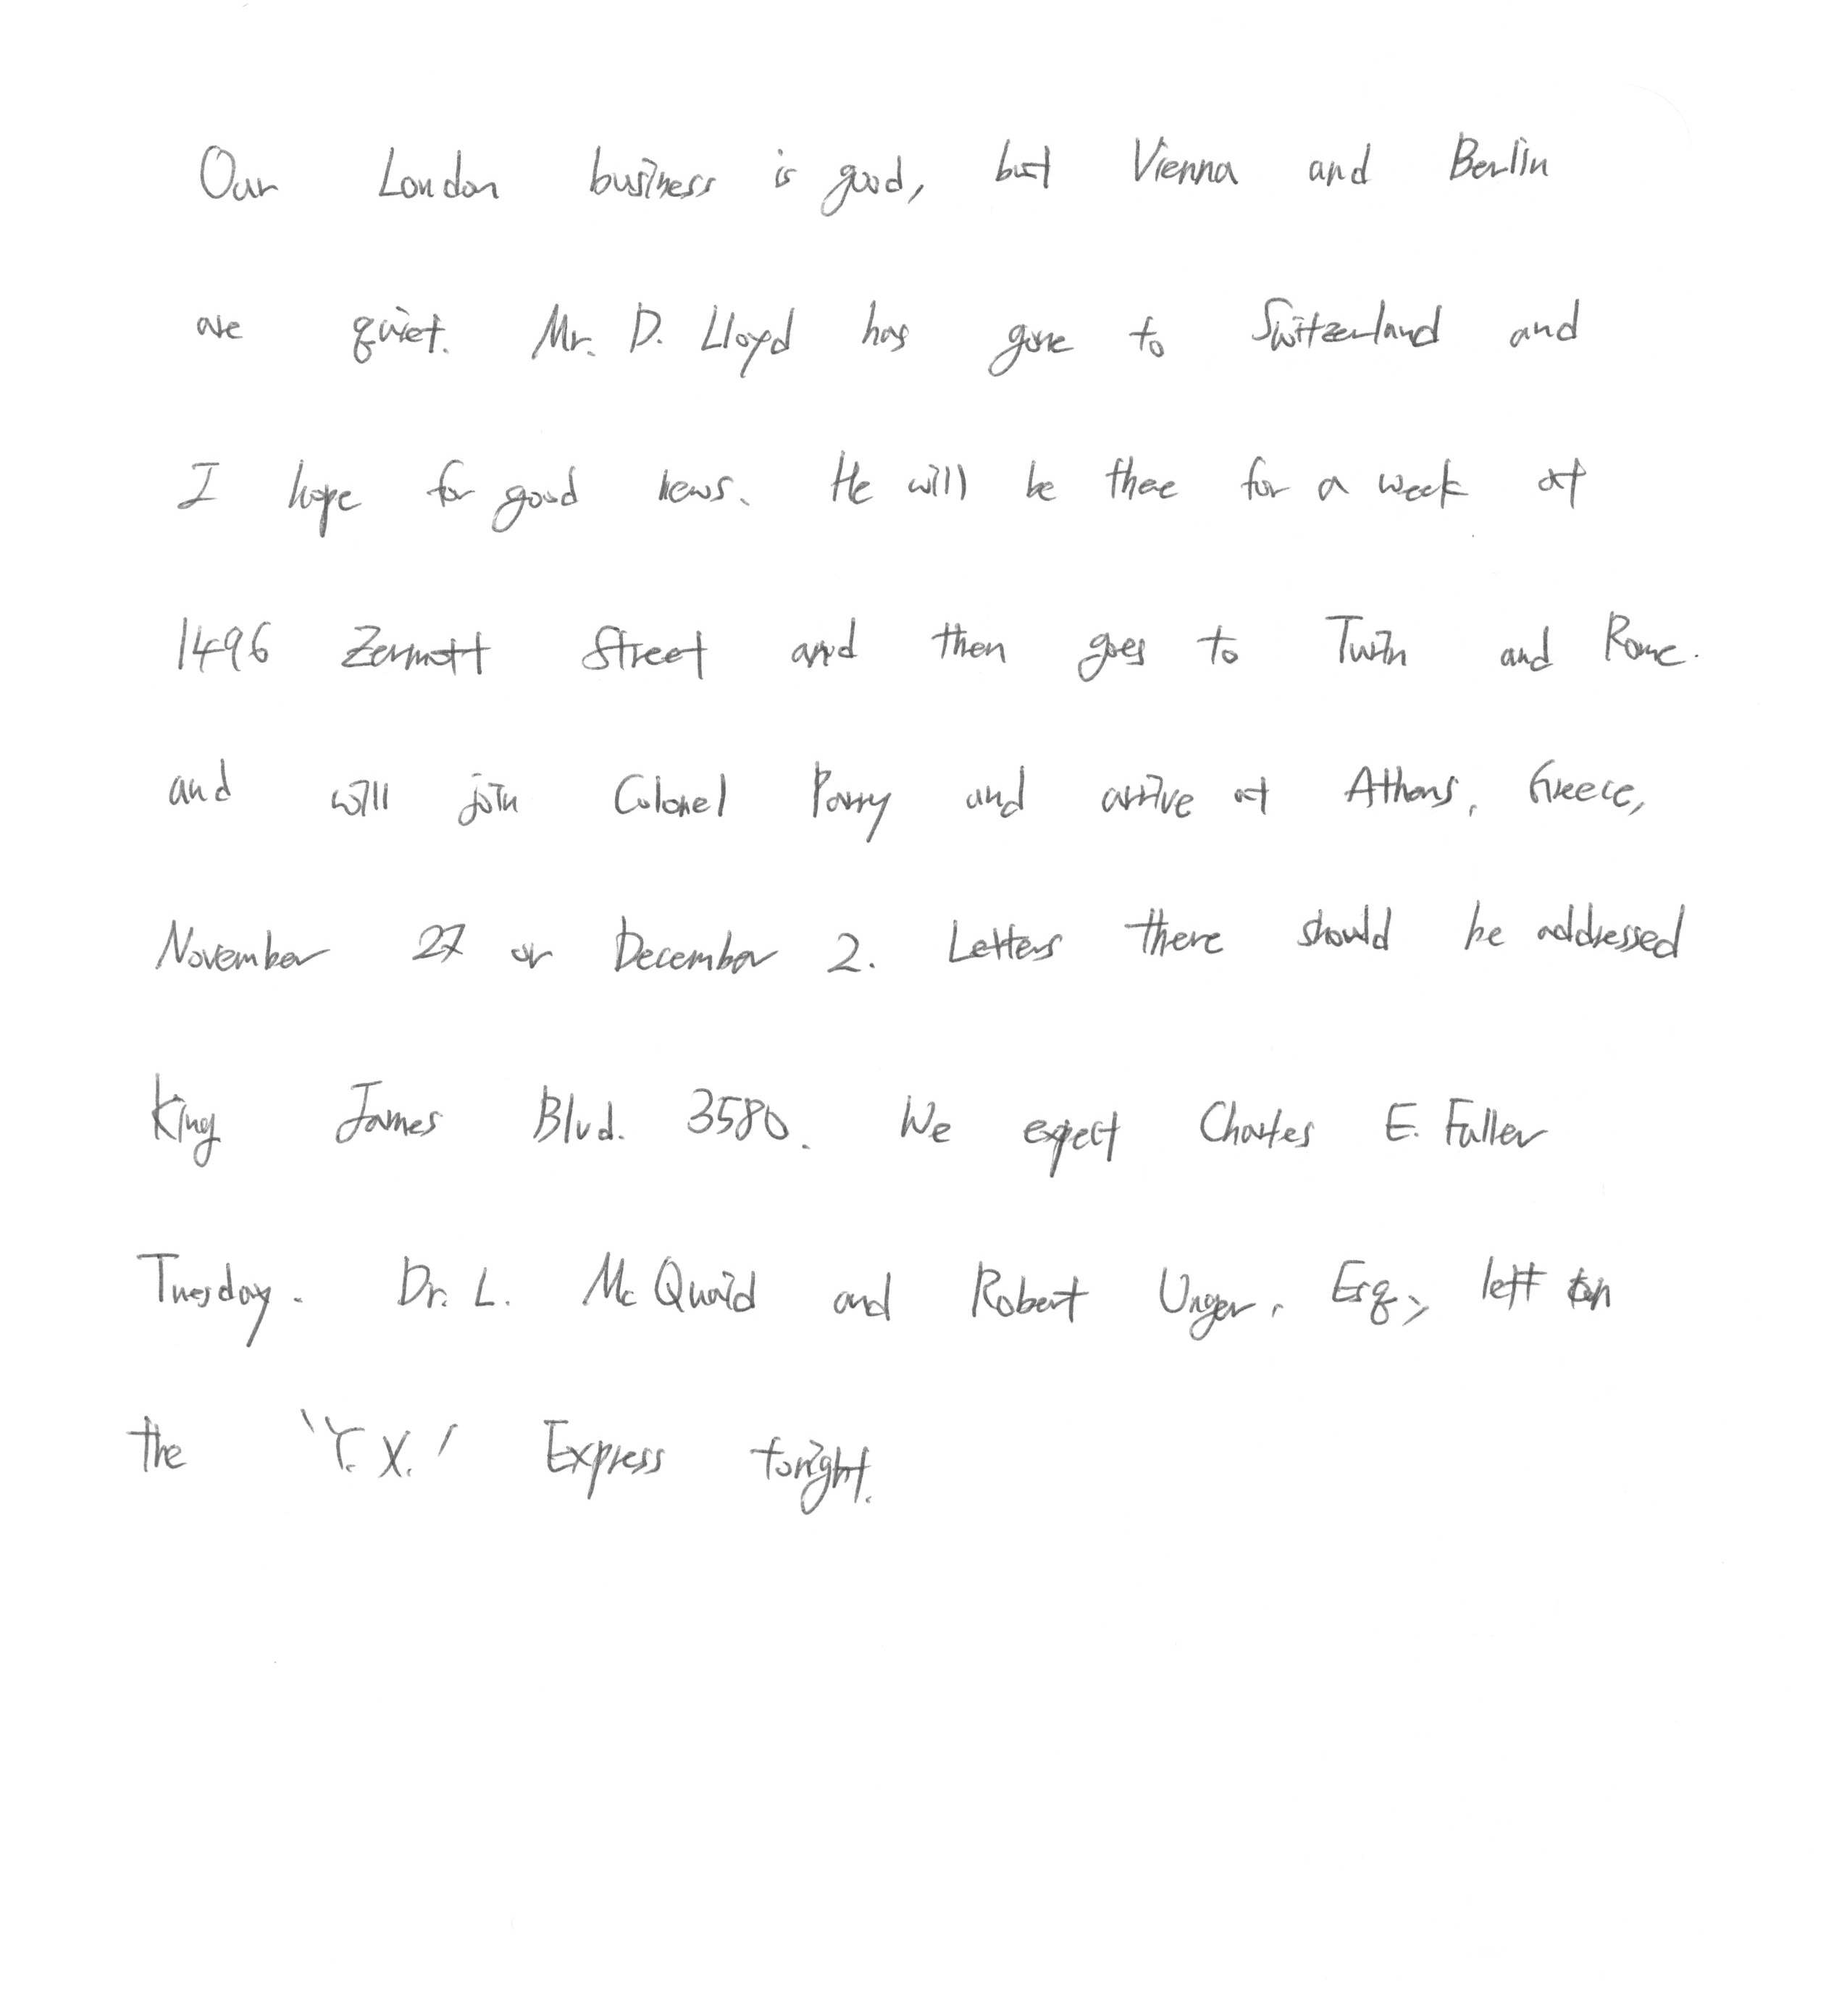 Our London business is good, but Vienna and Berlin
are quiet. Mr. D. Lloyd has gone to Switzerland and
I hope for good news. He will be there for a week at
1496 Zermott Street and then goes to Turin and Rome.
and will join Colonel Parry and arrive at Athens, Greece,
November 27 or December 2. Letters there should be addressed
King James Blvd. 3580. We expect Charles E. Fuller
Tuesday. Dr. L. McQuaid and Robert Unger, Esq., left on
the 'Y.X.' Express tonight.